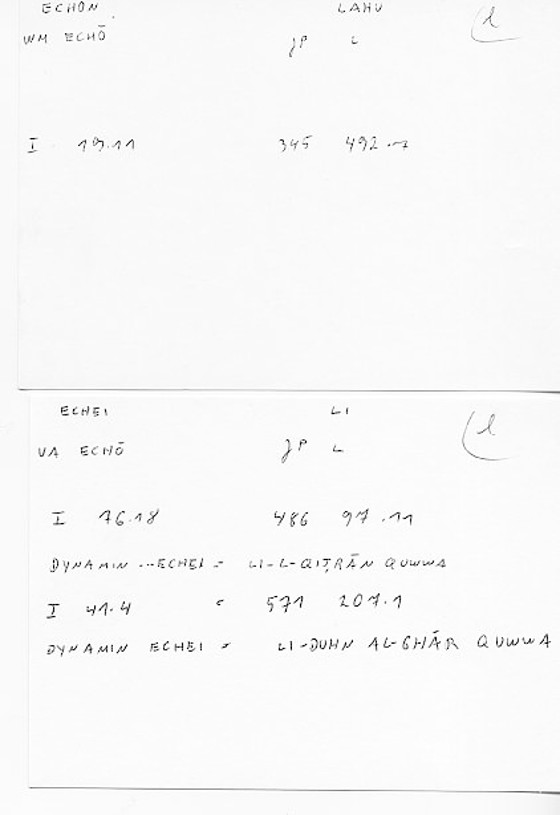 ECHON LAHU
WM ECHŌ JP L
I 19.11 345 492.7
ECHEI LI
VA ECHŌ JP L
I 76.18 486 97.11
DYNAMIN ...ECHEI = LI-L-QIṬRĀN QUWWA
I 41.4 571 207.1
DYNAMIN ECHEI = LI-DUHN AL-GHĀR QUWWA